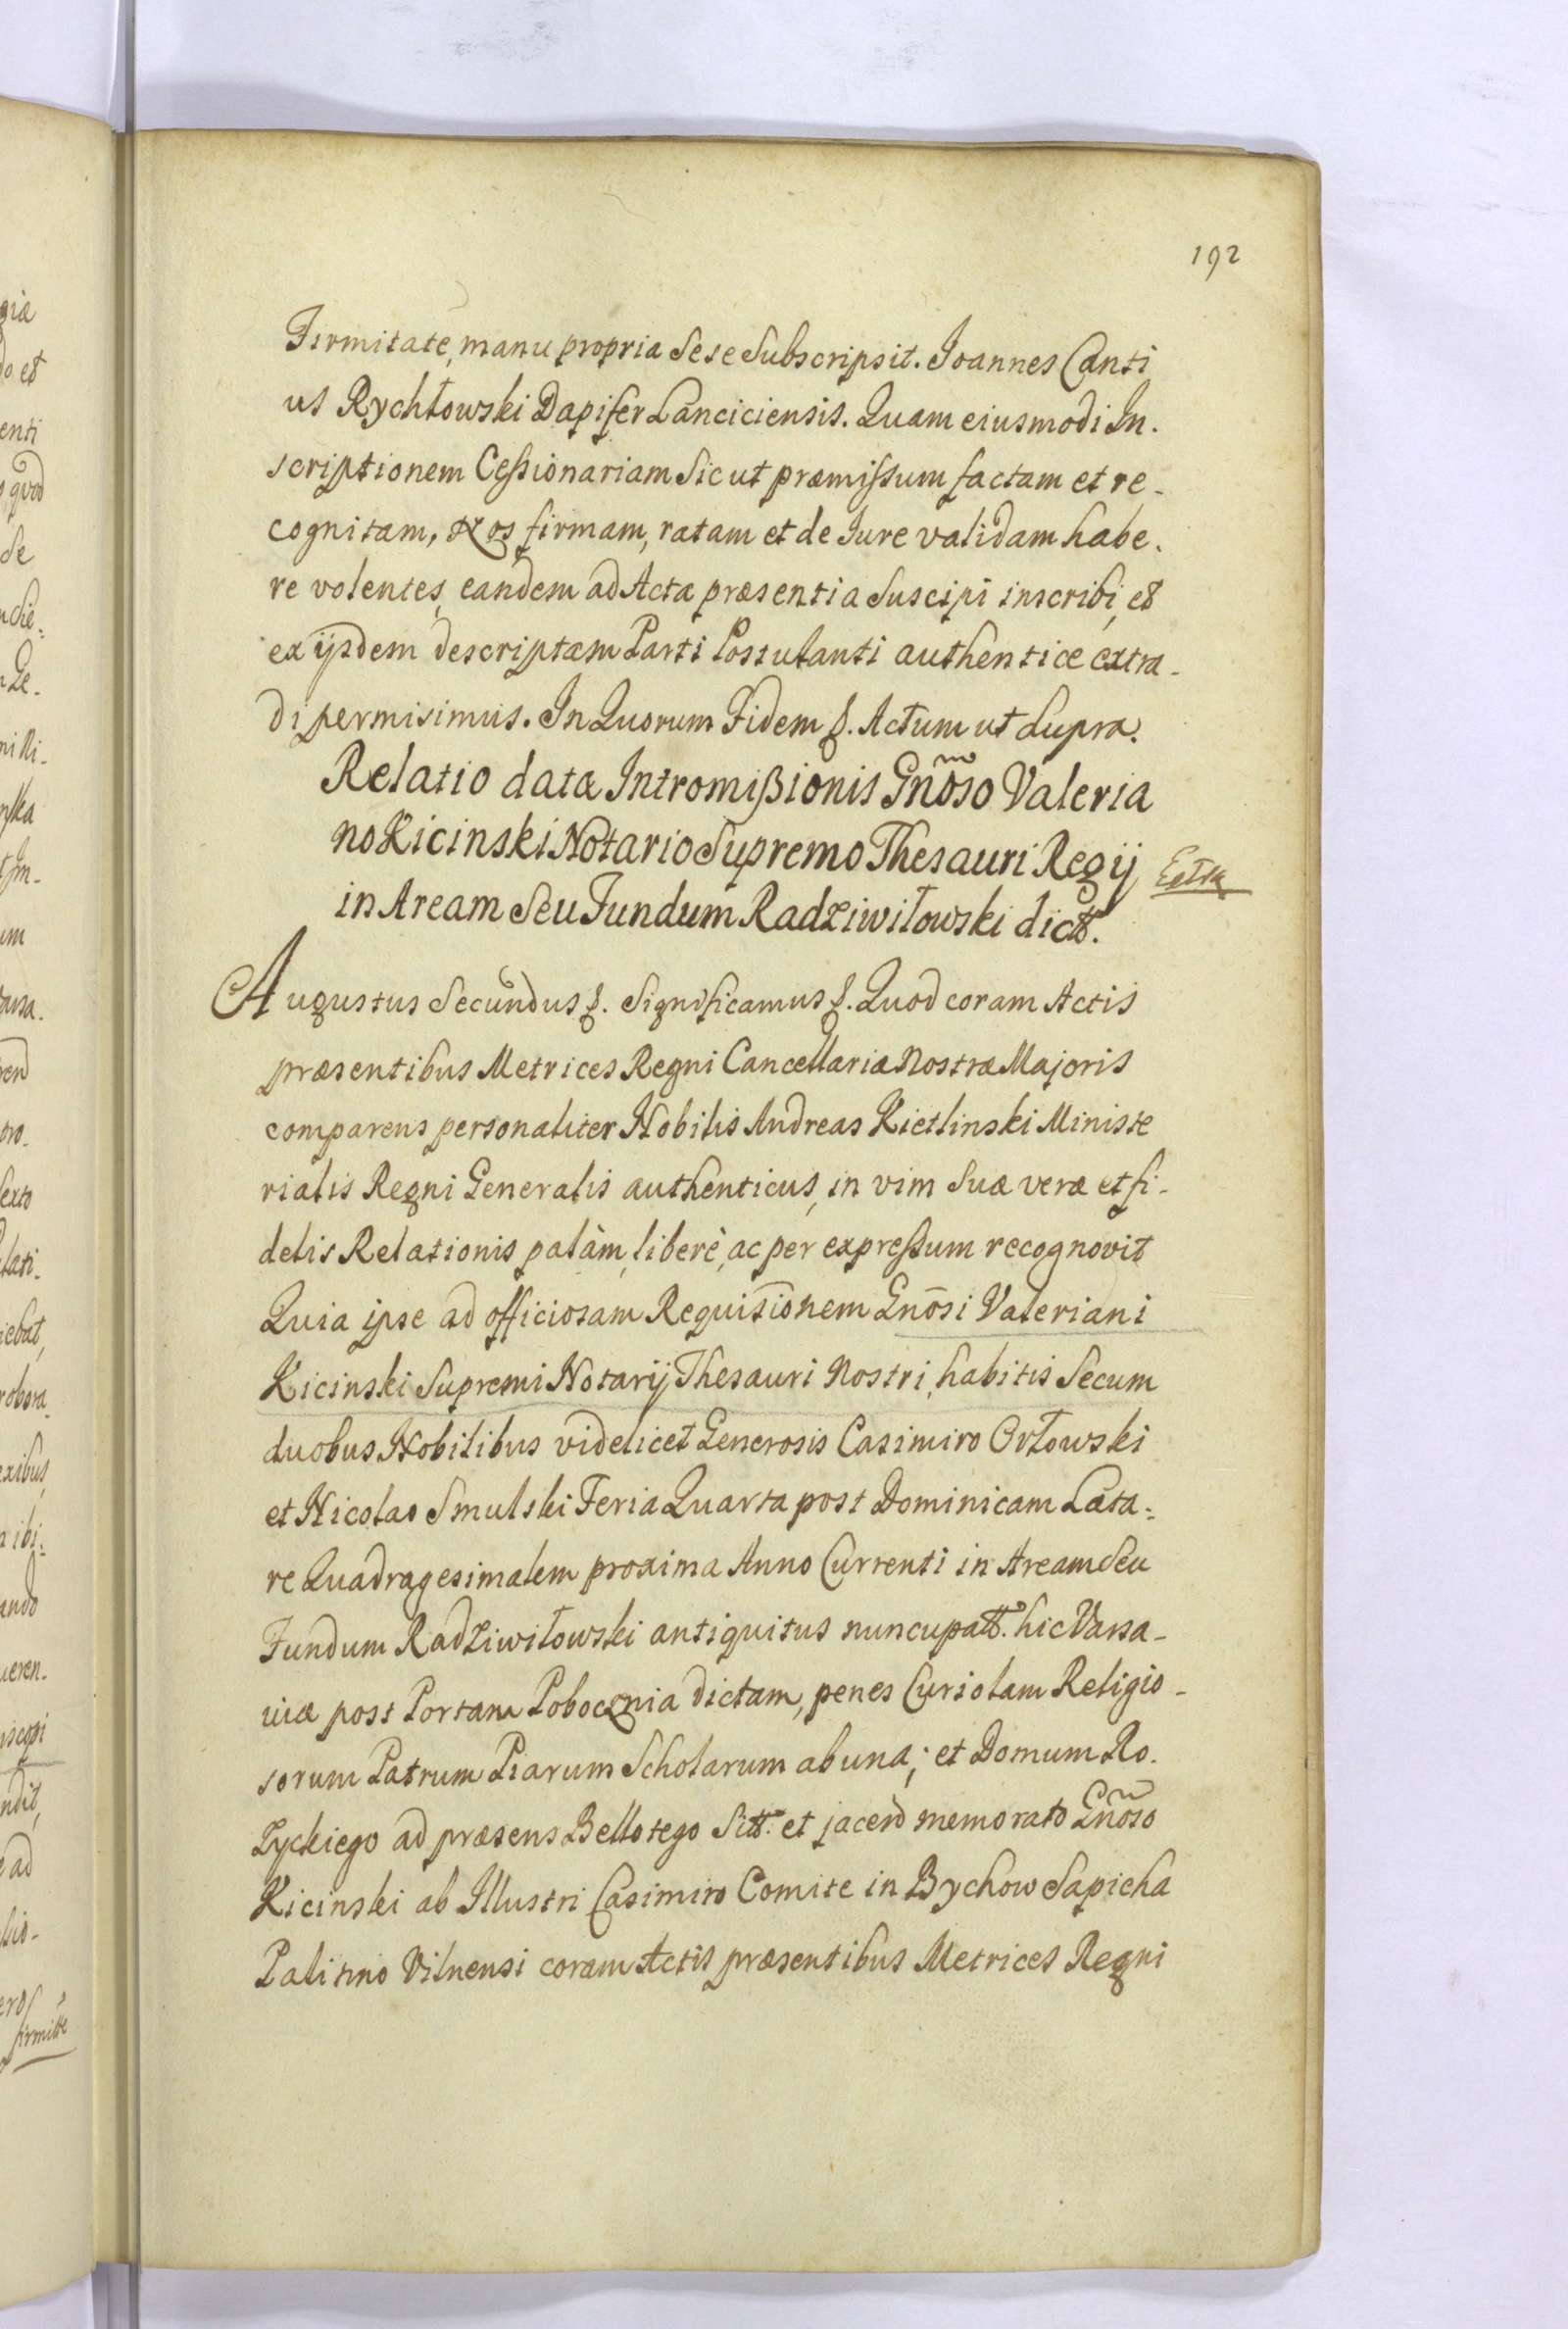 192
Firmitate, manu propria sese subscripsit. Joannes Canti
us Rychłowski Dapifer Lanciciensis. Quam eiusmodi In-
scriptionem Cessionariam sicut præmissum factam et re-
cognitam, Nos firmam, ratam et de Jure validam habe-
re volentes, eandem ad Acta præsentia suscipi inscribi, et
ex ijsdem descriptam Parti Postulanti authentice extra-
di permisimus. In Quorum Fidem &. Actum ut supra.
Relatio datæ Intromissionis Gnõso Valeria
no Kicinski Notario Supremo Thesauri Regij
Extra
in Aream seu Fundum Radziwiłowski dictt.
Augustus Secundus &. Significamus &. Quod coram Actis
præsentibus Metrices Regni Cancellariæ Nostræ Majoris
comparens personaliter Nobilis Andreas Kietlinski Ministe
rialis Regni Generalis authenticus, in vim suæ veræ et fi-
delis Relationis palàm, liberè, ac per expressum recognovit
Quia ipse ad officiosam Requisionem Gnõsi Valeriani
Kicinski Supremi Notarij Thesauri Nostri, habitis secum
duobus Nobilibus videlicet Generosis Casimiro Orłowski
et Nicolao Smulski Feria Quarta post Dominicam Læta-
re Quadragesimalem proxima Anno Currenti in Aream seu
Fundum Radziwiłowski antiquitus nuncupatt. hic Varsa-
viæ post Portam Pobocznia dictam, penes Curiolam Religio-
sorum Patrum Piarum Scholarum ab una; et Domum Ro-
Zyckiego ad præsens Bellotego sitt. et jacend memorato Gnõso
Kicinski ab Illustri Casimiro Comite in Bychow Sapieha
Palitino Vilnensi coram Actis præsentibus Metrices Regni